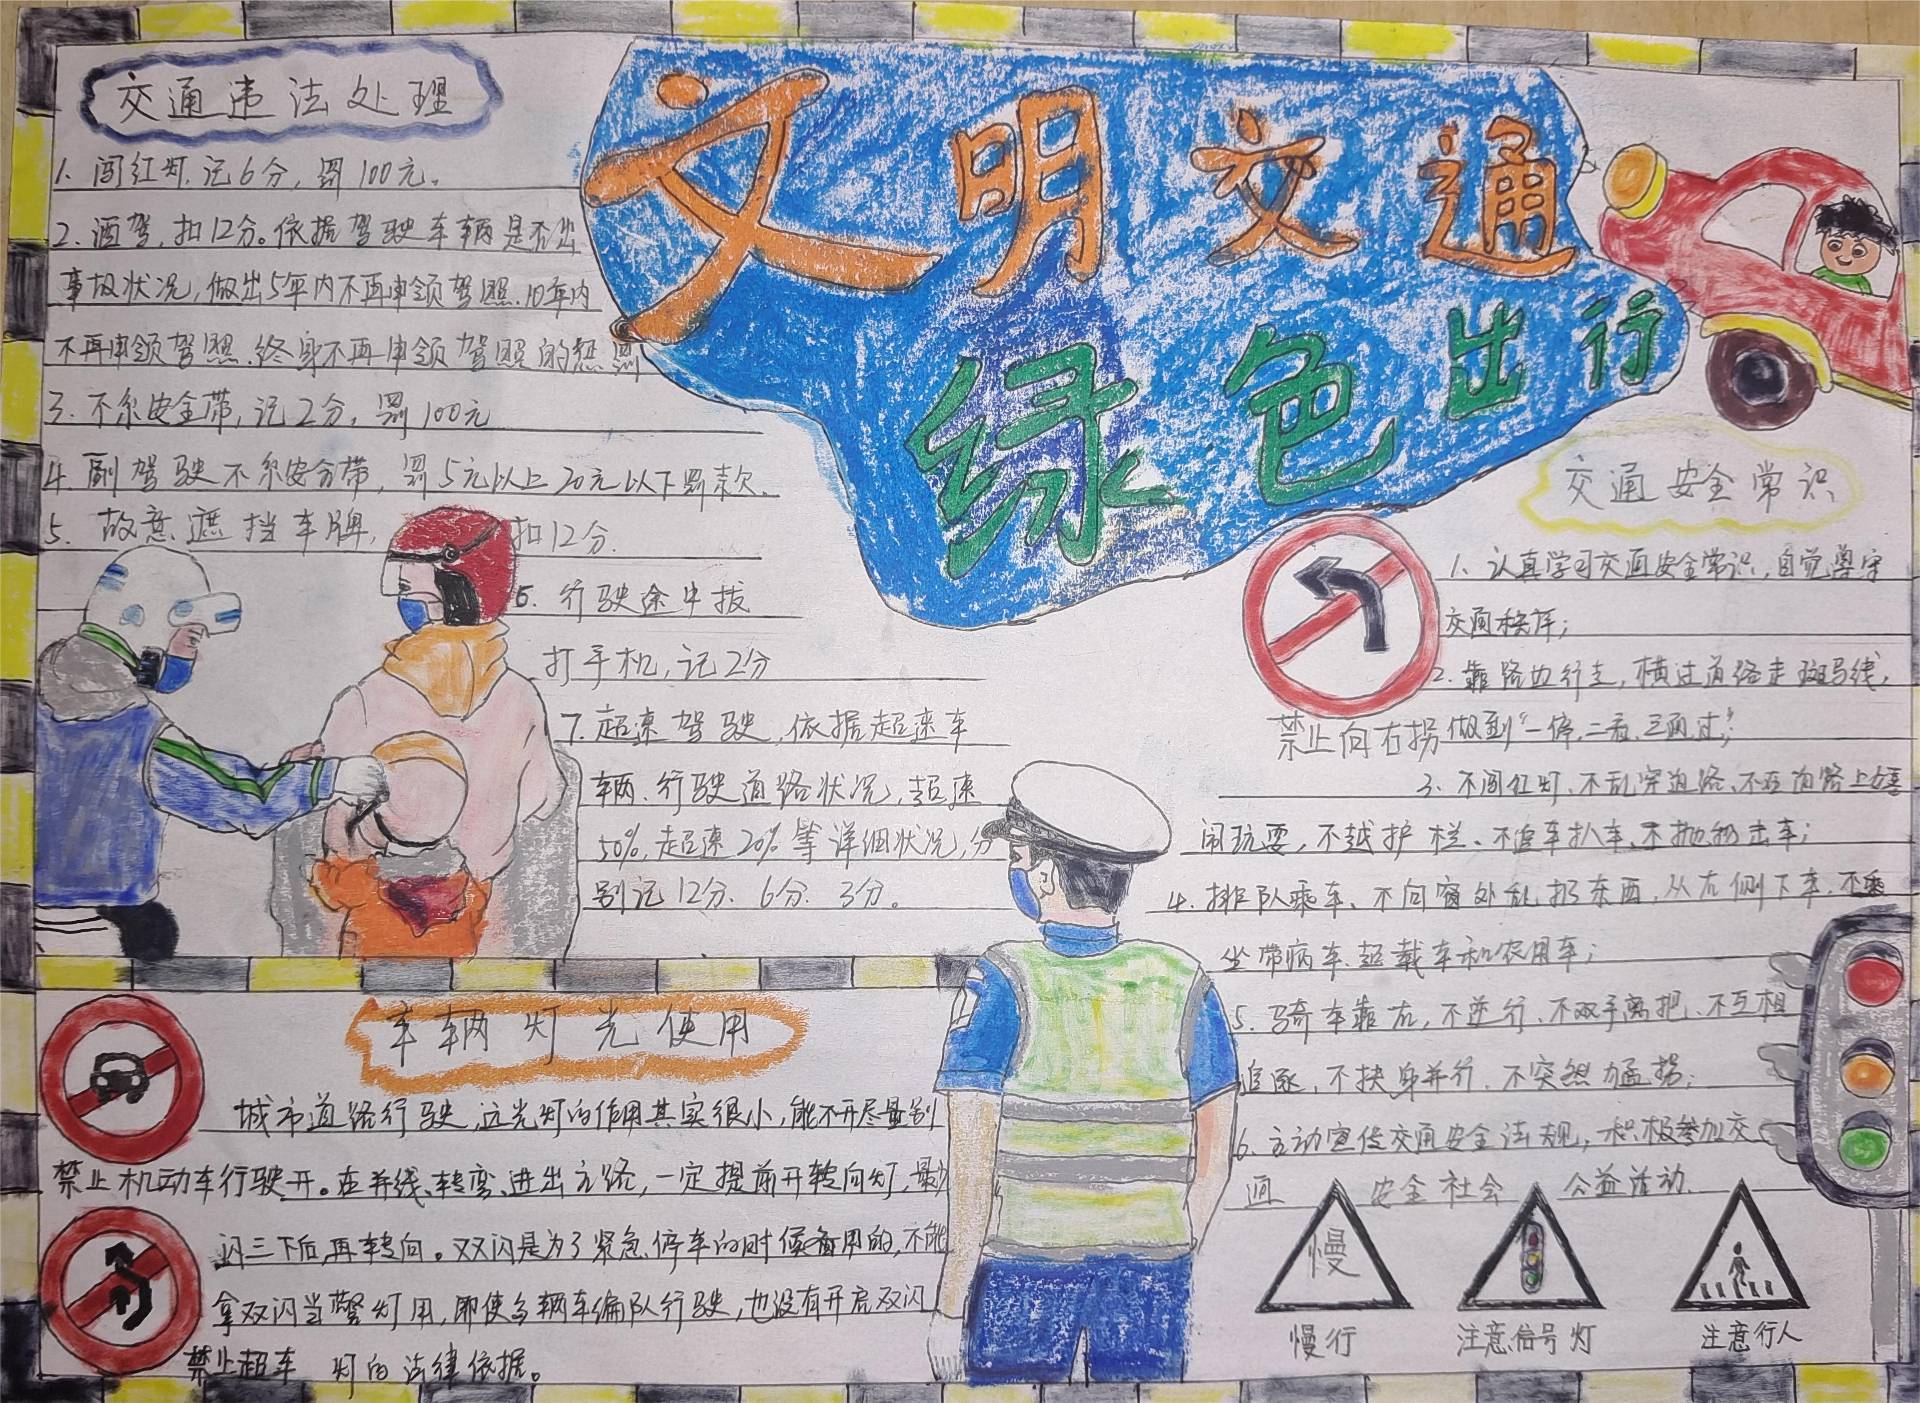 文明交通
绿色出行
交通违法处理
1. 闯红灯,记6分,罚100元。
2. 酒驾,扣12分。依据驾驶车辆是否出
事故状况,做出5年内不再申领驾照、10年内
不再申领驾照、终身不再申领驾照的惩罚
3. 不系安全带,记2分,罚100元
4. 副驾驶不系安全带,罚5元以上20元以下罚款.
5. 故意遮挡车牌, 扣12分.
6. 行驶途中拔
打手机,记2分
7. 超速驾驶,依据超速车
辆、行驶道路状况,超速
50%,超速20%等详细状况,分
别记12分、6分、3分。
车辆灯光使用
城市道路行驶,远光灯的作用其实很小,能不开尽量别
开。在并线、转弯、进出主路,一定提前开转向灯,最少
闪三下后,再转向。双闪是为了紧急停车的时候备用的,不能
拿双闪当警灯用,即使多辆车编队行驶,也没有开启双闪
灯的法律依据。
禁止机动车行驶
禁止超车
交通安全常识
1. 认真学习交通安全常识,自觉遵守
交通秩序;
2. 靠路边行走,横过道路走斑马线,
做到“一停、二看、三通过”;
3. 不闯红灯、不乱穿道路、不在道路上嬉
闹玩耍,不越护栏、不追车扒车、不抛物击车;
4. 排队乘车、不向窗外乱扔东西,从右侧下车,不乘
坐带病车、超载车和农用车;
5. 骑车靠右,不逆行、不双手离把、不互相
追逐,不扶身并行、不突然猛拐;
6. 主动宣传交通安全法规,积极参加交
通 安全社会 公益活动.
禁止向右拐
慢
慢行
注意信号灯
注意行人